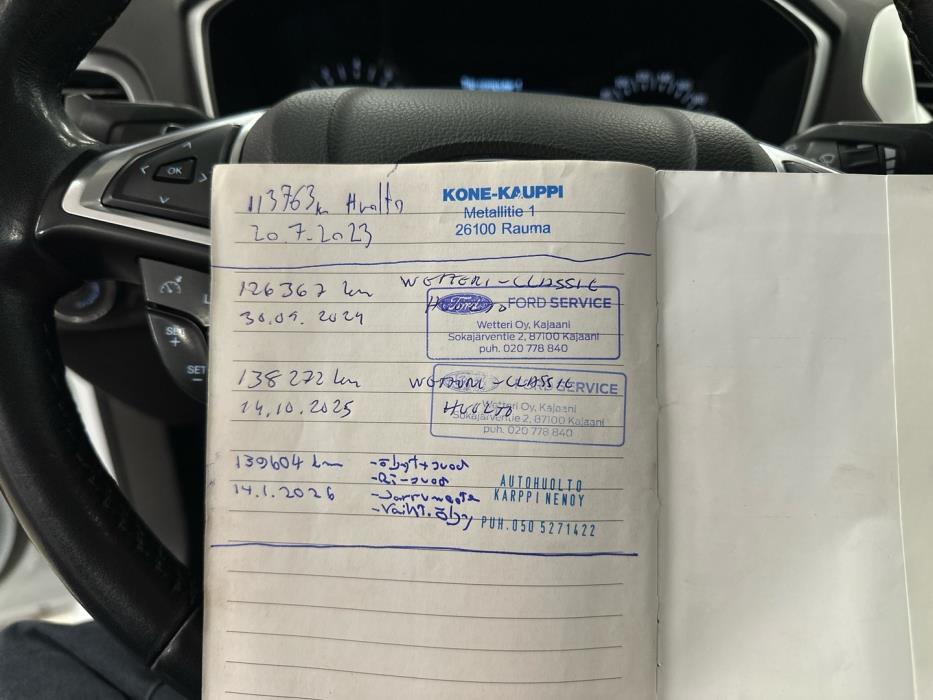 OK
SET
+
SET
-
113763 km Huolto
20.7.2023
KONE-KAUPPI
Metallitie 1
26100 Rauma
126367 km
30.09.2024
WETTERI-CLASSIC
Ford FORD SERVICE
Wetteri Oy, Kajaani
Sokajärventie 2, 87100 Kajaani
puh. 020 778 840
138272 km
14.10.2025
WETTERI-CLASSIC
HUOLTO
FORD SERVICE
Wetteri Oy, Kajaani
Sokajärventie 2, 87100 Kajaani
puh. 020 778 840
139604 km
14.1.2026
-öljyt+suod
-Ri-suod
-Jarruneste
-Vaiht.öljy
AUTOHUOLTO
KARPPINEN OY
PUH. 050 5271422